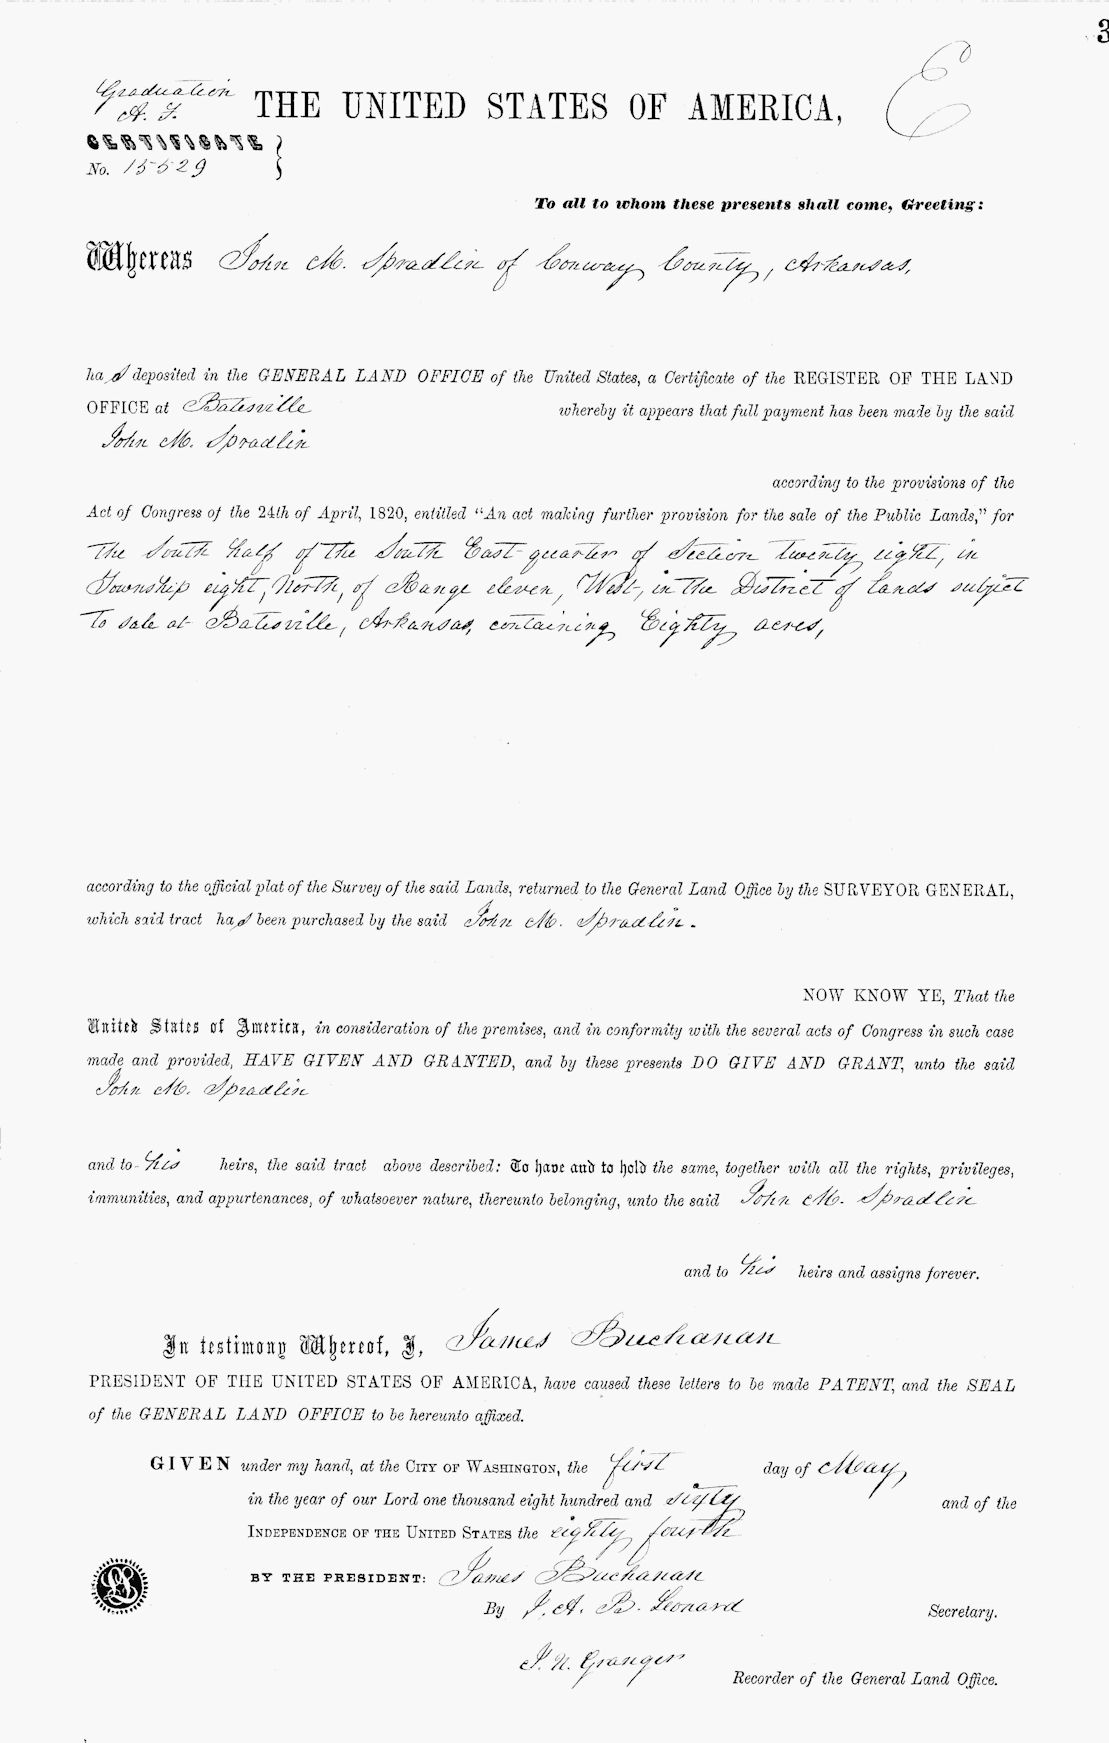 3
Graduation
A. F.
E
THE UNITED STATES OF AMERICA,
CERTIFICATE
No. 15529
To all to whom these presents shall come, Greeting:
Whereas John M. Spradlin of Conway County, Arkansas,
has deposited in the GENERAL LAND OFFICE of the United States, a Certificate of the REGISTER OF THE LAND
OFFICE at Batesville whereby it appears that full payment has been made by the said
John M. Spradlin
according to the provisions of the
Act of Congress of the 24th of April, 1820, entitled “An act making further provision for the sale of the Public Lands,” for
The South half of the South East quarter of Section twenty eight, in
Township eight, North, of Range eleven, West, in the District of lands subject
to sale at Batesville, Arkansas, containing Eighty acres,
according to the official plat of the Survey of the said Lands, returned to the General Land Office by the SURVEYOR GENERAL,
which said tract has been purchased by the said John M. Spradlin.
NOW KNOW YE, That the
United States of America, in consideration of the premises, and in conformity with the several acts of Congress in such case
made and provided, HAVE GIVEN AND GRANTED, and by these presents DO GIVE AND GRANT, unto the said
John M. Spradlin
and to his heirs, the said tract above described: To have and to hold the same, together with all the rights, privileges,
immunities, and appurtenances, of whatsoever nature, thereunto belonging, unto the said John M. Spradlin
and to his heirs and assigns forever.
In testimony Whereof, I, James Buchanan
PRESIDENT OF THE UNITED STATES OF AMERICA, have caused these letters to be made PATENT, and the SEAL
of the GENERAL LAND OFFICE to be hereunto affixed.
GIVEN under my hand, at the CITY OF WASHINGTON, the first day of May,
in the year of our Lord one thousand eight hundred and sixty and of the
INDEPENDENCE OF THE UNITED STATES the eighty fourth
BY THE PRESIDENT: James Buchanan
By J. A. B. Leonard Secretary.
LS
J. N. Granger
Recorder of the General Land Office.